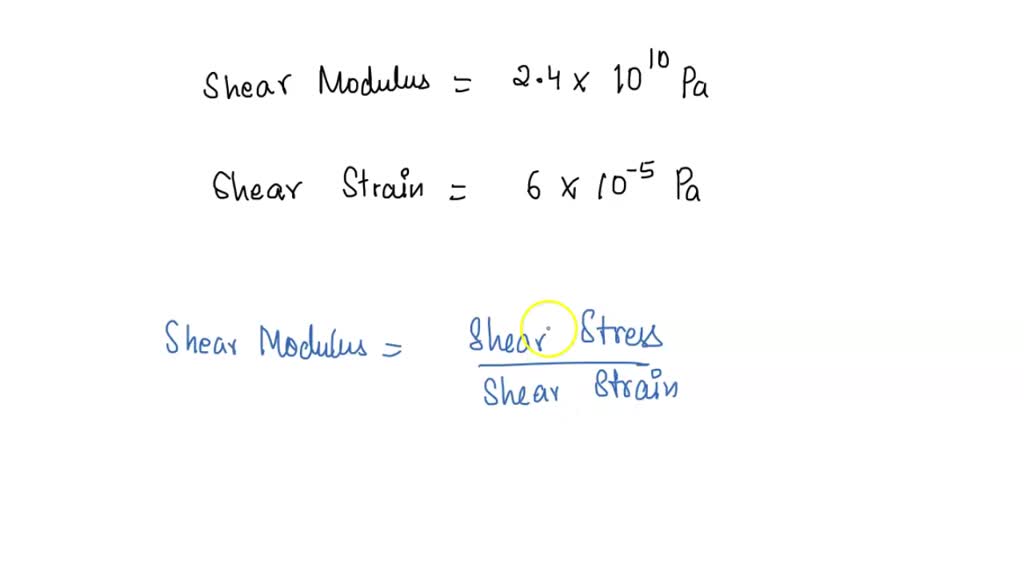 Shear Modulus = 2.4 × 10¹⁰ Pa
Shear Strain = 6 × 10⁻⁵ Pa
Shear Modulus = Shear Stress
Shear Strain